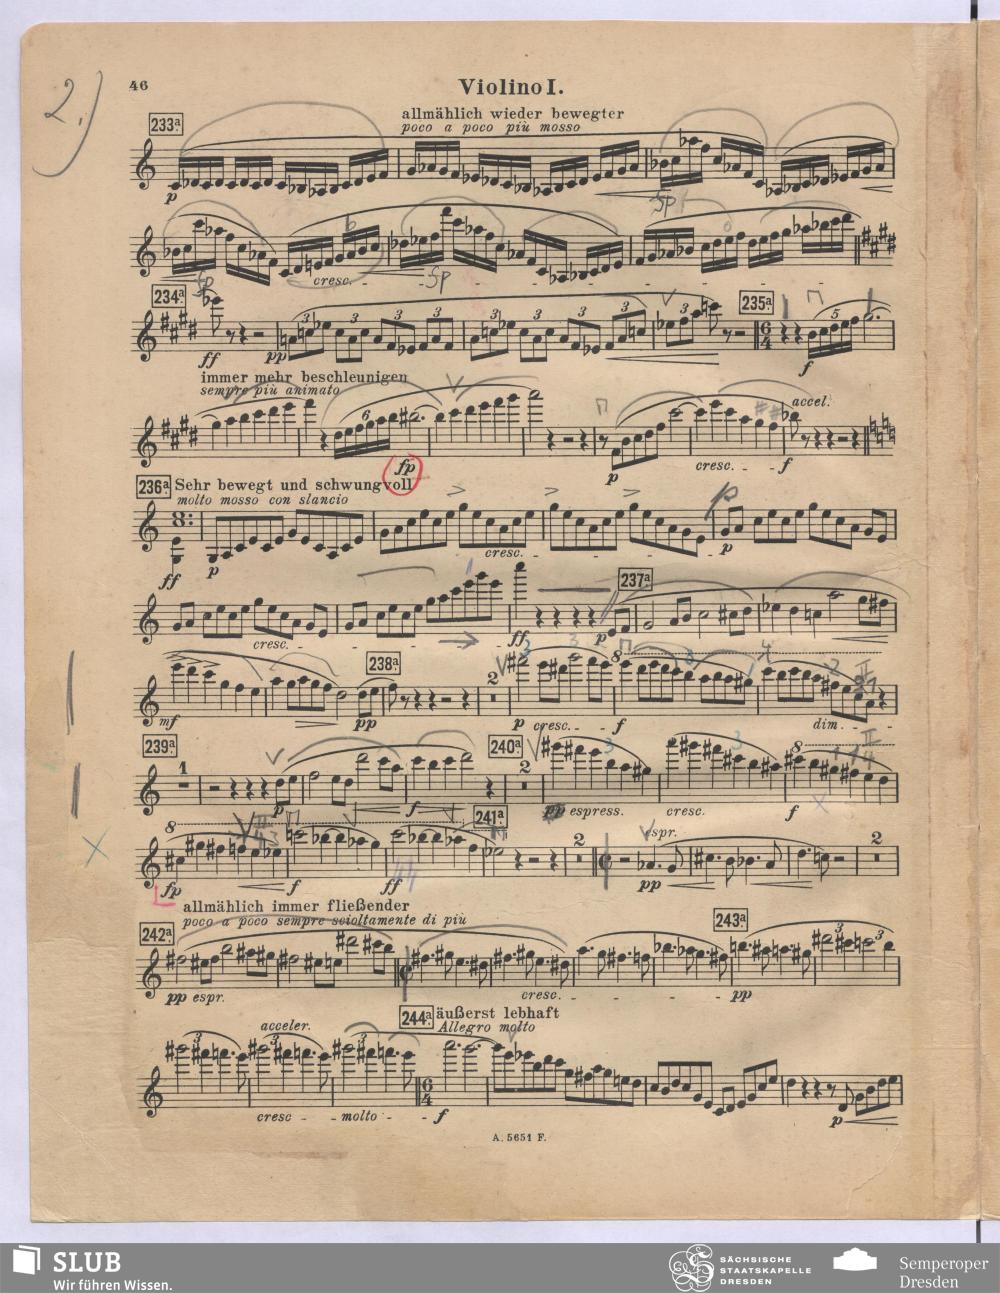 2.)
46
Violino I.
233a.
allmählich wieder bewegter
poco a poco più mosso
p
fp
fp
cresc.
fp
234a.
235a.
3 3 3 3 3 3 3
5
6
4
ff
pp
f
immer mehr beschleunigen
sempre più animato
accel.
6
fp
p
cresc. - - f
236a. Sehr bewegt und schwungvoll
molto mosso con slancio
p
ff
p
cresc.
p
237a.
cresc.
ff
p
238a.
8
3 3 3 4
2
mf
pp
p cresc.
f
dim.
239a.
240a.
1
2
3
3
8
p
f
pp espress.
cresc.
f
8
241a.
espr.
2
2
fp
f
ff
pp
allmählich immer fließender
poco a poco sempre scioltamente di più
242a.
243a.
3
3
pp espr.
cresc.
pp
244a. äußerst lebhaft
acceler.
Allegro molto
3 3 3
6
4
cresc - - molto - - f
p
A. 5651 F.
SLUB
Wir führen Wissen.
SÄCHSISCHE
STAATSKAPELLE
DRESDEN
Semperoper
Dresden